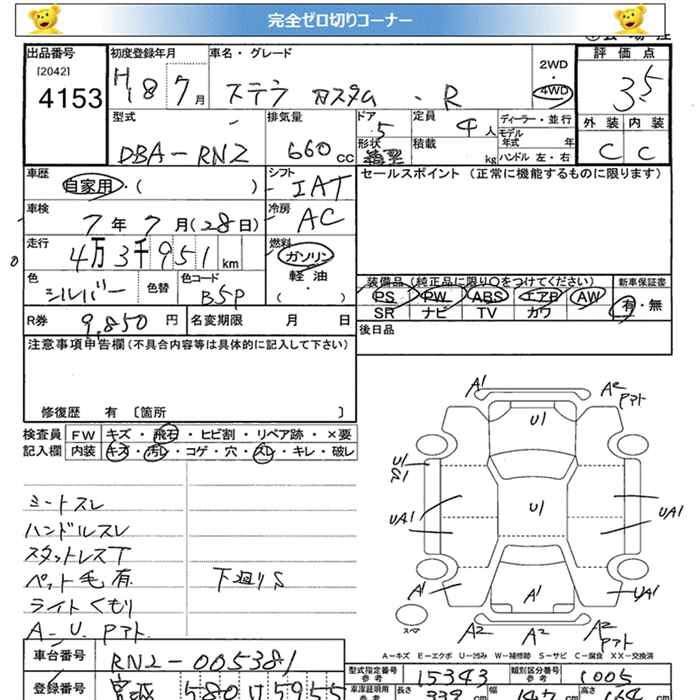 完全ゼロ切りコーナー
出品番号 初度登録年月 車名・グレード 2WD 評価点
[2042] 4153 H18 7月 ステラ カスタム・R 4WD 3.5
型式 排気量 ドア 定員 ディーラー・並行 外装 内装
DBA-RN2 660cc 5 4人 モデル年式 年 C C
形状 積載 kg ハンドル 左・右
車歴 自家用・( ) シフト IAT セールスポイント (正常に機能するものに限ります)
車検 7年7月(28日) 冷房 AC
走行 4万3千951km 燃料 ガソリン
軽油
・
( )
色 シルバー 色替 色コード B5P
装備品(純正品に限り○をつけてください) 新車保証書
PS PW ABS エアB AW 有・無
SR ナビ TV カワ
R券 9,850円 名変期限 月 日 後日品
注意事項申告欄(不具合内容等は具体的に記入して下さい)
修復歴 有 〔箇所 〕
検査員 FW キズ・飛石・ヒビ割・リペア跡・×要
記入欄 内装 キズ・汚レ・コゲ・穴・スレ・キレ・破レ
A1 A2 アト
U1
U1 S1
UA1 U1 UA1
A1 A1 UA1
スペア A2 A2 A2 アト
シートスレ
ハンドルスレ
スタットレスT
ペット毛有 下廻りS
ライトくもり
A-U アト
A-キズ E-エクボ U-凹み W-補修跡 S-サビ C-腐食 XX-交換済
車台番号 RN2-005381
型式指定番号 参考 15343 類別区分番号 参考 1005
登録番号 宮城 580 け 5955
車庫証明用 参考 長さ 339cm 幅 147cm 高さ 164cm